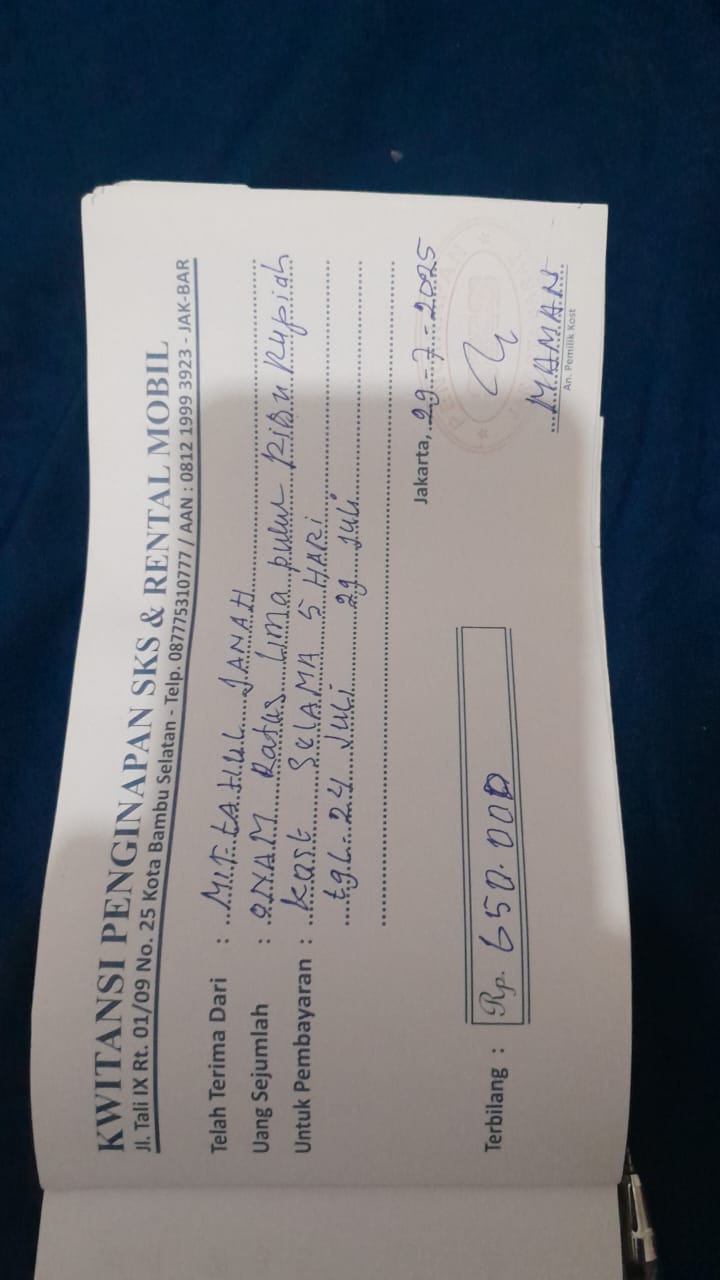 KWITANSI PENGINAPAN SKS & RENTAL MOBIL
Jl. Tali IX Rt. 01/09 No. 25 Kota Bambu Selatan - Telp. 087775310777 / AAN : 0812 1999 3923 - JAK-BAR
Telah Terima Dari : MIFTAHUL JANAH
Uang Sejumlah : ENAM Ratus Lima puluh Ribu Rupiah
Untuk Pembayaran : Kost SELAMA 5 HARI
tgl. 24 Juli 29 Juli
Jakarta, 29-7-2025
Terbilang : Rp. 650.000
MAMAN
An. Pemilik Kost